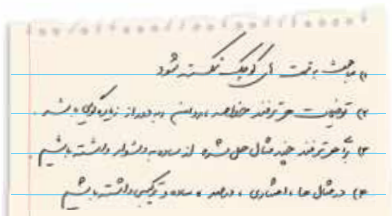 ۱) مباحث به قسمت های کوچک شکسته شود
۲) توضیحات هر ترفند خلاصه، روان و به دور از زیاده گویی باشد.
۳) برای هر ترفند چند مثال حل شده از ساده به دشوار داشته باشیم
۴) در مثال ها، اعشاری، درصد، ساده و ترکیبی داشته باشیم